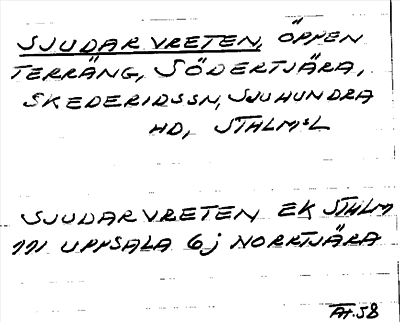 SJUDARVRETEN, ÖPPEN
TERRÄNG, SÖDERTJÄRA,
SKEDERIDSSN, SJUHUNDRA
HD, STHLMSL
SJUDARVRETEN EK STHLM
111 UPPSALA 6j NORRTJÄRA
AH.58